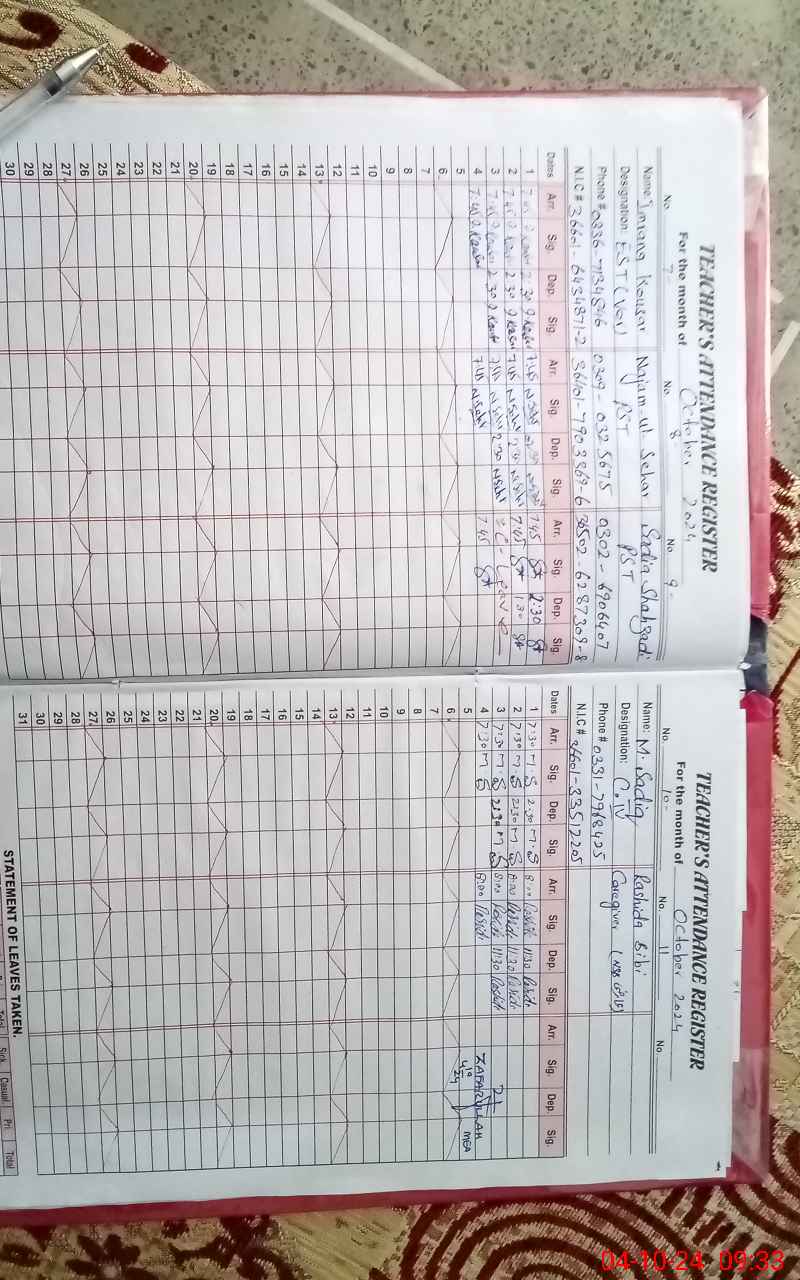 TEACHER'S ATTENDANCE REGISTER
For the month of October 2024
No. 7- No. 8 No. 9-
Name: Imrana Kousar Najam-ul-Sehar Sadia Shahzadi
Designation: EST (Ver) PST PST
Phone # 0336-7134546 0309-0325675 0302-6906407
N.I.C # 36601-6434871-2 36401-7903369-6 36502-6287309-8
Dates Arr. Sig. Dep. Sig. Arr. Sig. Dep. Sig. Arr. Sig. Dep. Sig.
1 7:45 2 30 7:45 2 30 7:45 2:30
2 7:45 2 30 7:45 2 30 7:45 1:30
3 7:45 2 30 7:45 2 30 C-Leave
4 7:45 7:45 7:45
5
6
7
8
9
10
11
12
13
14
15
16
17
18
19
20
21
22
23
24
25
26
27
28
29
30
TEACHER'S ATTENDANCE REGISTER
For the month of October 2024
No. 10- No. 11 No.
Name: M. Sadiq Rashida Bibi
Designation: C.IV Caregiver
Phone # 0331-7968425
N.I.C # 36601-33517205
Dates Arr. Sig. Dep. Sig. Arr. Sig. Dep. Sig. Arr. Sig. Dep. Sig.
1 7:30 M.S 2:30 M.S 8:00 Rashida 11:30 Rashida
2 7:30 M.S 2:30 M.S 8:00 Rashida 11:30 Rashida
3 7:30 M.S 2:30 M.S 8:00 Rashida 11:30 Rashida
4 7:30 M.S 8:00 Rashida ZAFARULLAH MEA
5
6
7
8
9
10
11
12
13
14
15
16
17
18
19
20
21
22
23
24
25
26
27
28
29
30
31
STATEMENT OF LEAVES TAKEN.
Total Sick. Casual. Pri. Total
04-10-24 09:33